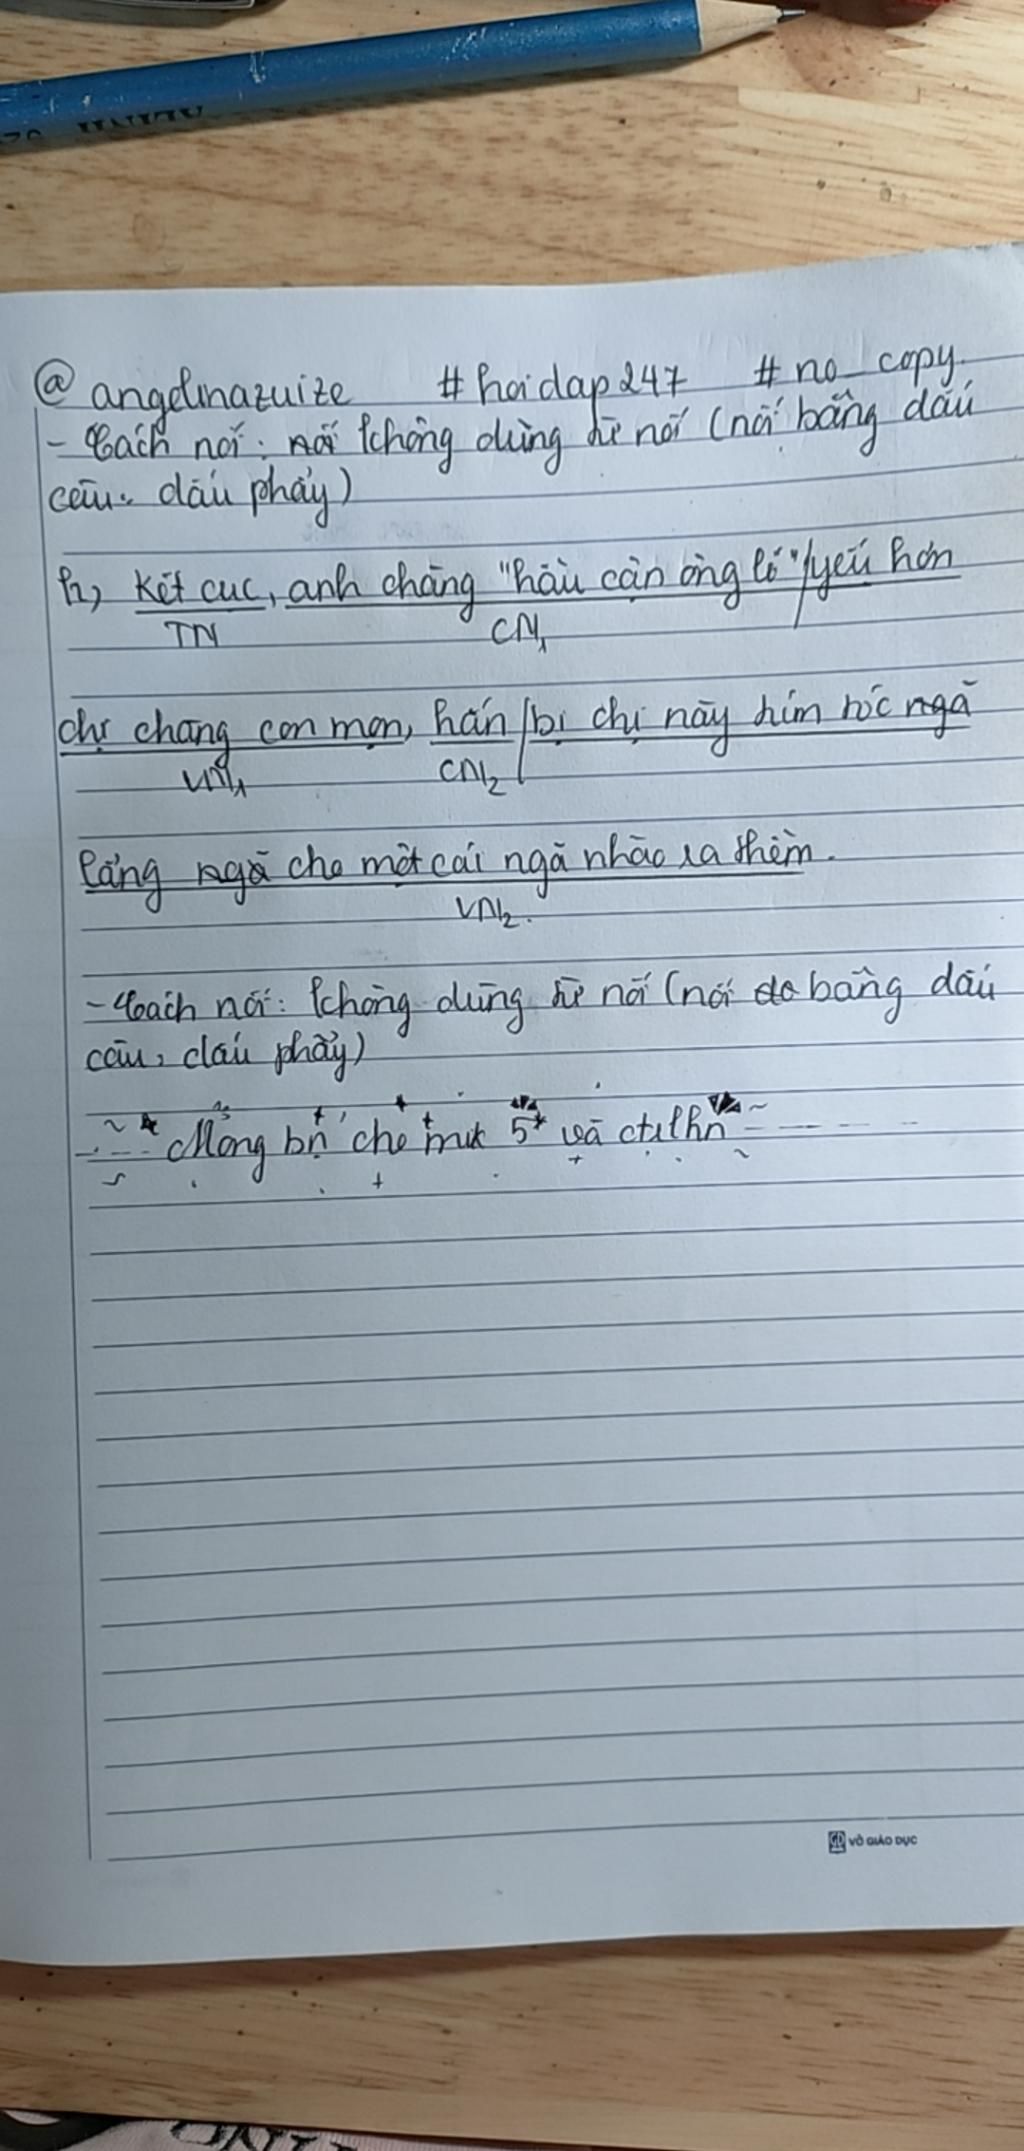 @ angelinazuize #hoidap247 #no copy.
- Cách nối: nối không dùng từ nối (nối bằng dấu
câu, dấu phẩy)
h, Kết cục, anh chàng "hầu cận ông lí"/yếu hơn
TN CN1
chị chàng con mọn, hắn/bị chị này túm tóc ngã
VN1 CN2
lẳng ngã cho một cái ngã nhào ra thềm.
VN2.
- Cách nối: không dùng từ nối (nối do bằng dấu
câu, dấu phẩy)
Mong bn cho mik 5* và ctlhn
VỞ GIÁO DỤC